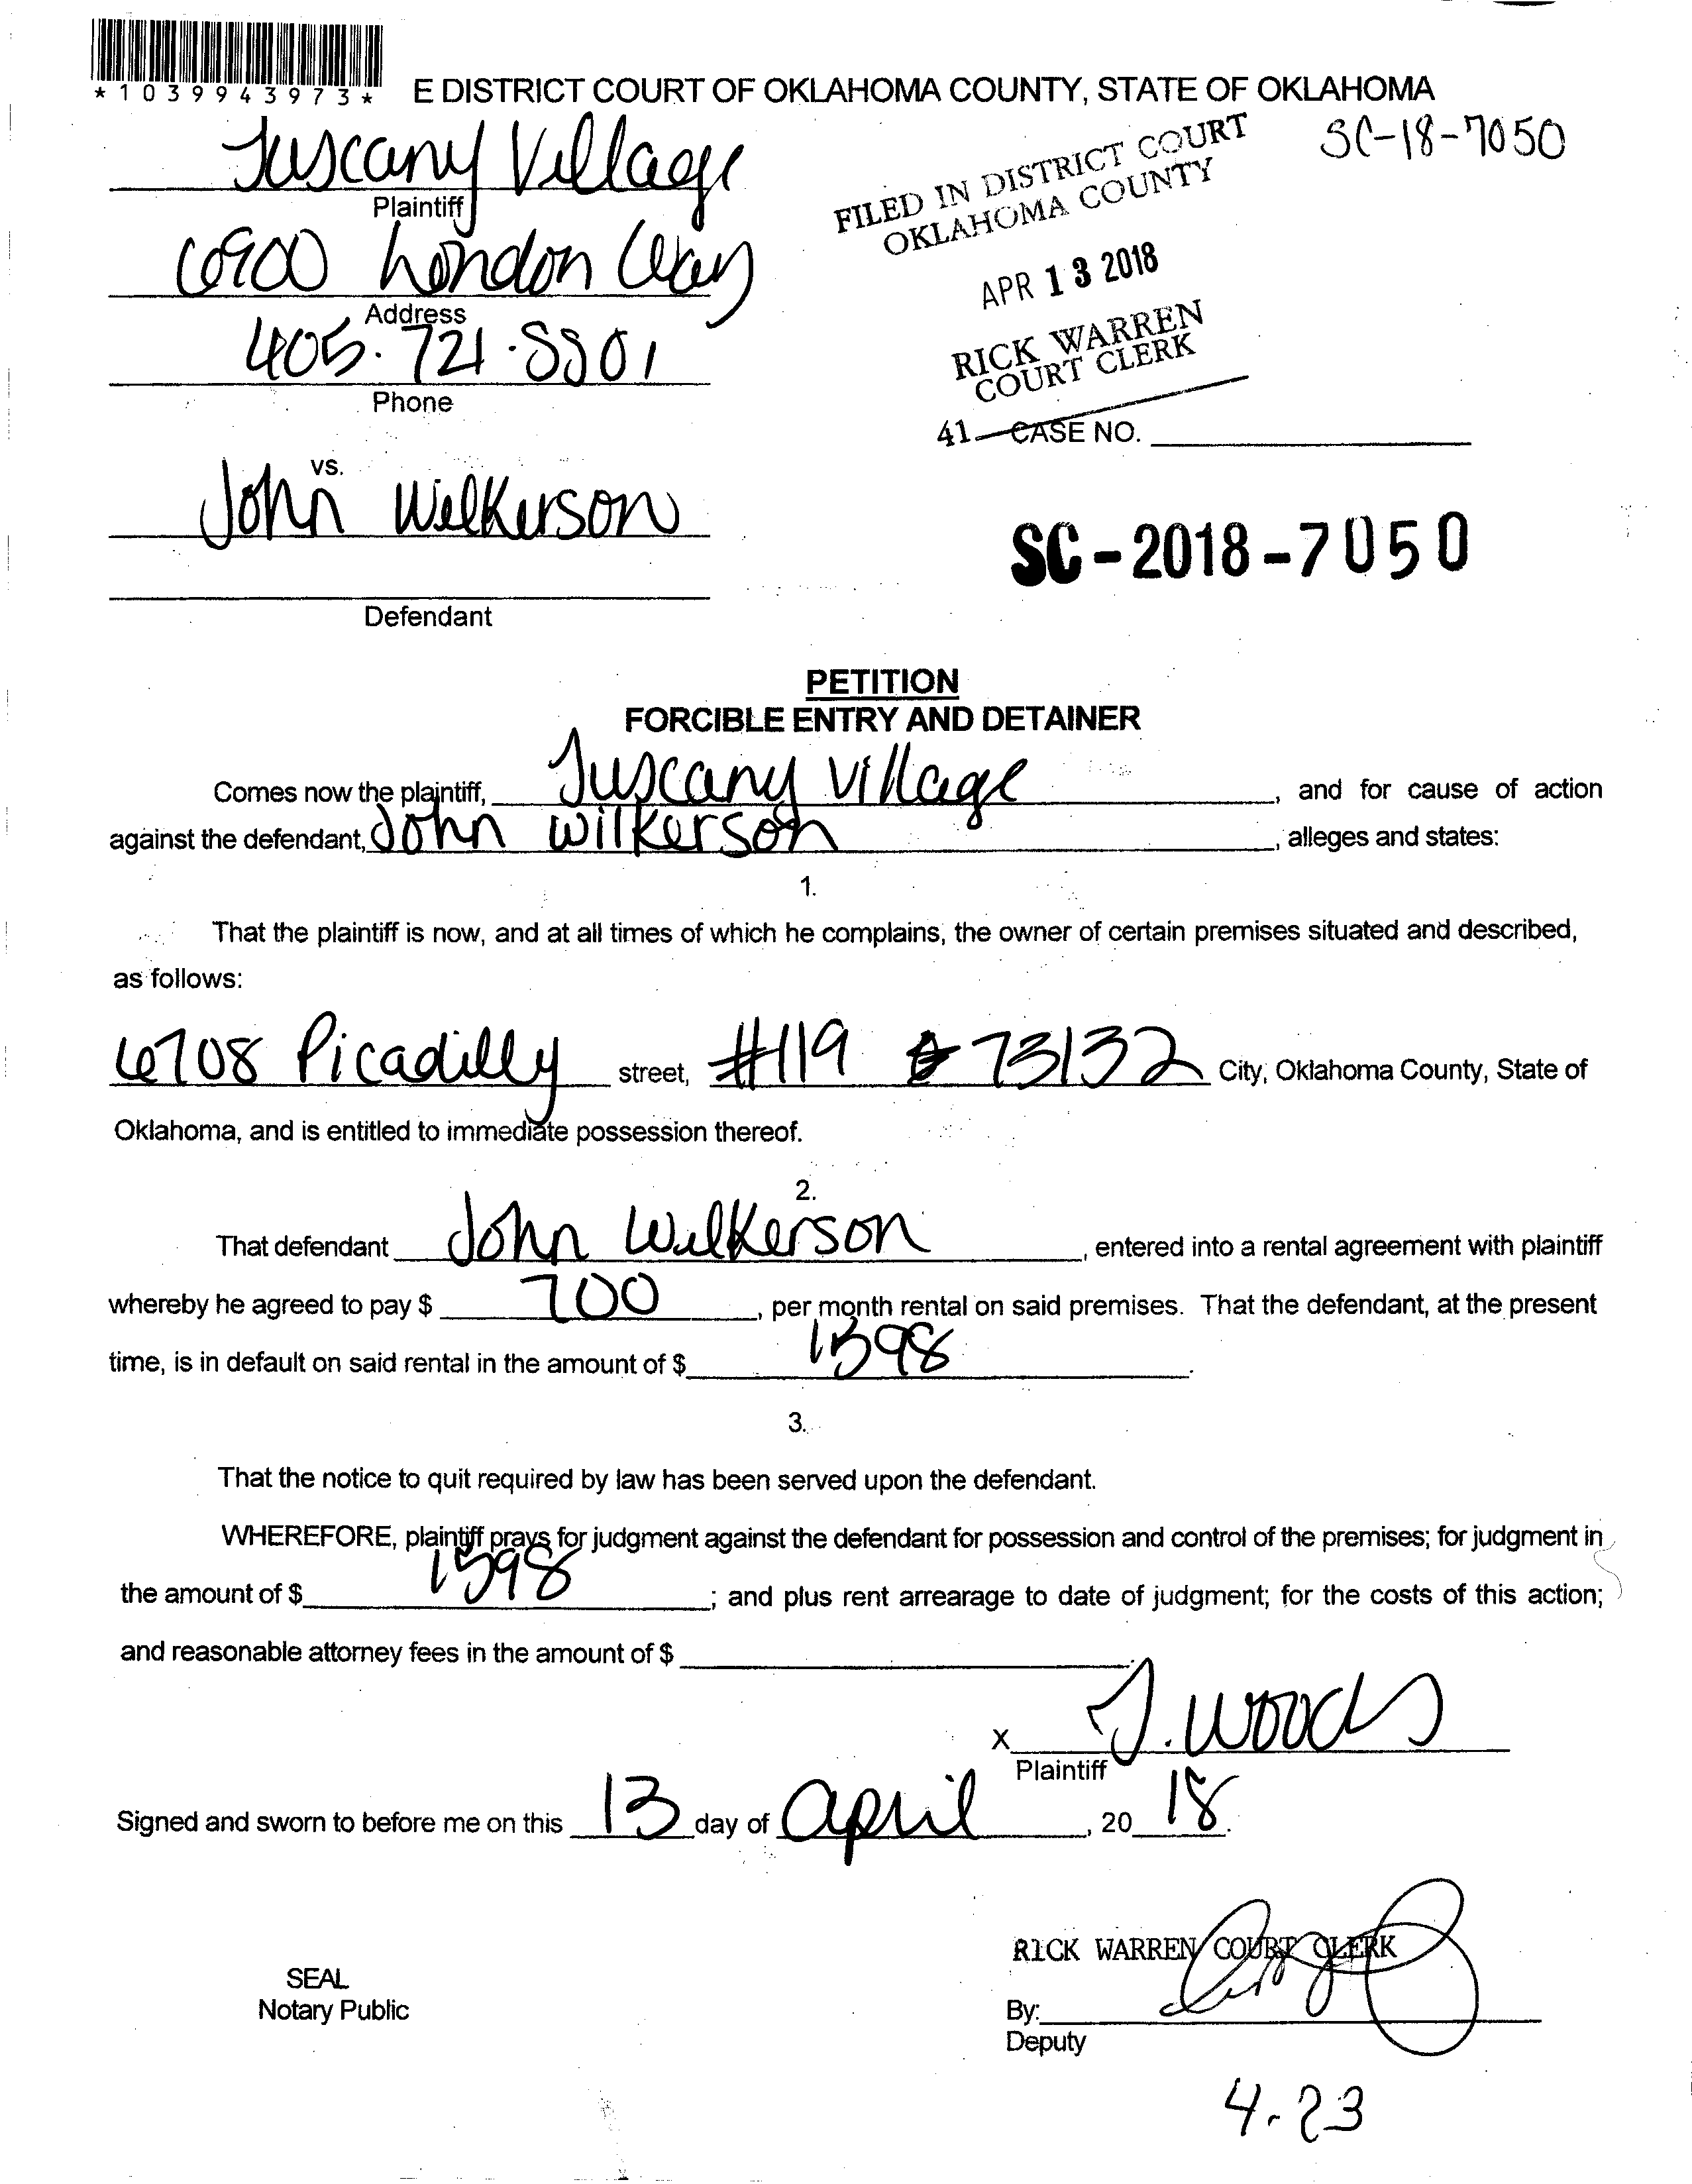 *1039943973*
E DISTRICT COURT OF OKLAHOMA COUNTY, STATE OF OKLAHOMA
SC-18-7050
Tuscany Village
Plaintiff
FILED IN DISTRICT COURT
OKLAHOMA COUNTY
6900 London Way
Address
APR 13 2018
405.721.5501
Phone
RICK WARREN
COURT CLERK
41 CASE NO.
vs.
John Wilkerson
SC-2018-7050
Defendant
PETITION
FORCIBLE ENTRY AND DETAINER
Comes now the plaintiff, Tuscany Village, and for cause of action
against the defendant, John Wilkerson, alleges and states:
1.
That the plaintiff is now, and at all times of which he complains, the owner of certain premises situated and described,
as follows:
6708 Picadilly street, #119 73132 City, Oklahoma County, State of
Oklahoma, and is entitled to immediate possession thereof.
2.
That defendant John Wilkerson, entered into a rental agreement with plaintiff
whereby he agreed to pay $ 700, per month rental on said premises. That the defendant, at the present
time, is in default on said rental in the amount of $ 1598.
3.
That the notice to quit required by law has been served upon the defendant.
WHEREFORE, plaintiff prays for judgment against the defendant for possession and control of the premises; for judgment in
the amount of $ 1598; and plus rent arrearage to date of judgment; for the costs of this action;
and reasonable attorney fees in the amount of $ .
X J. Woods
Plaintiff
Signed and sworn to before me on this 13 day of April, 20 18.
RICK WARREN COURT CLERK
SEAL
Notary Public
By:
Deputy
4-23